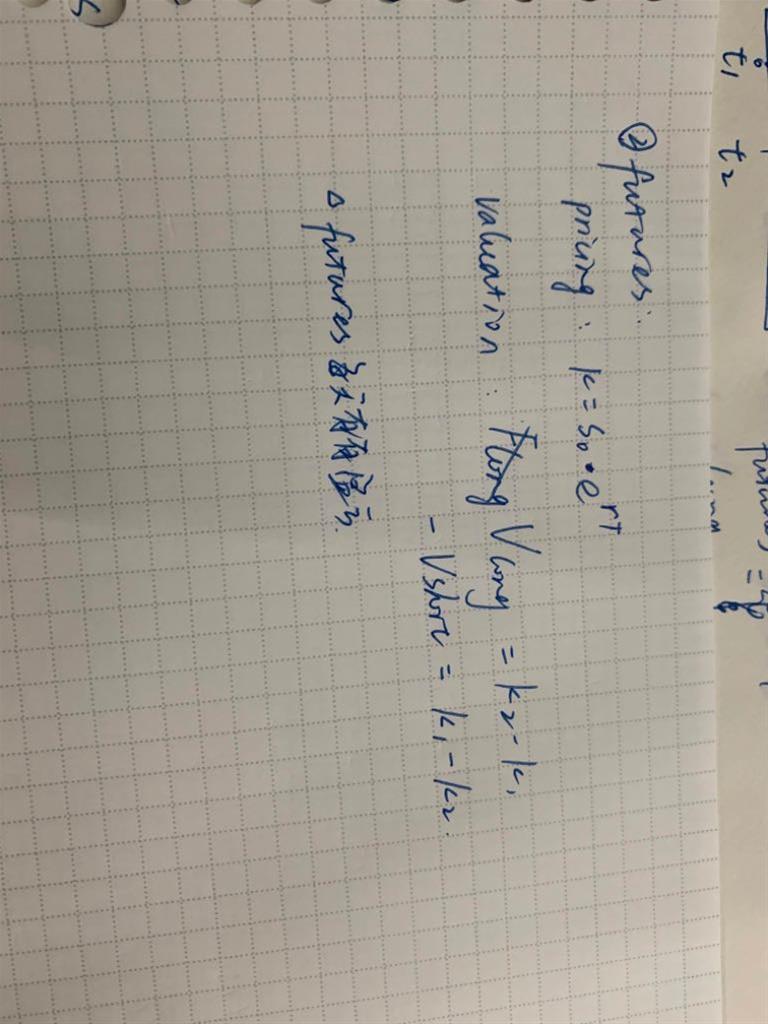 t₁ t₂
② futures:
pricing : k = S₀·e^rT
valuation : V long = k₂ - k₁
- V short = k₁ - k₂.
△ futures 每天有